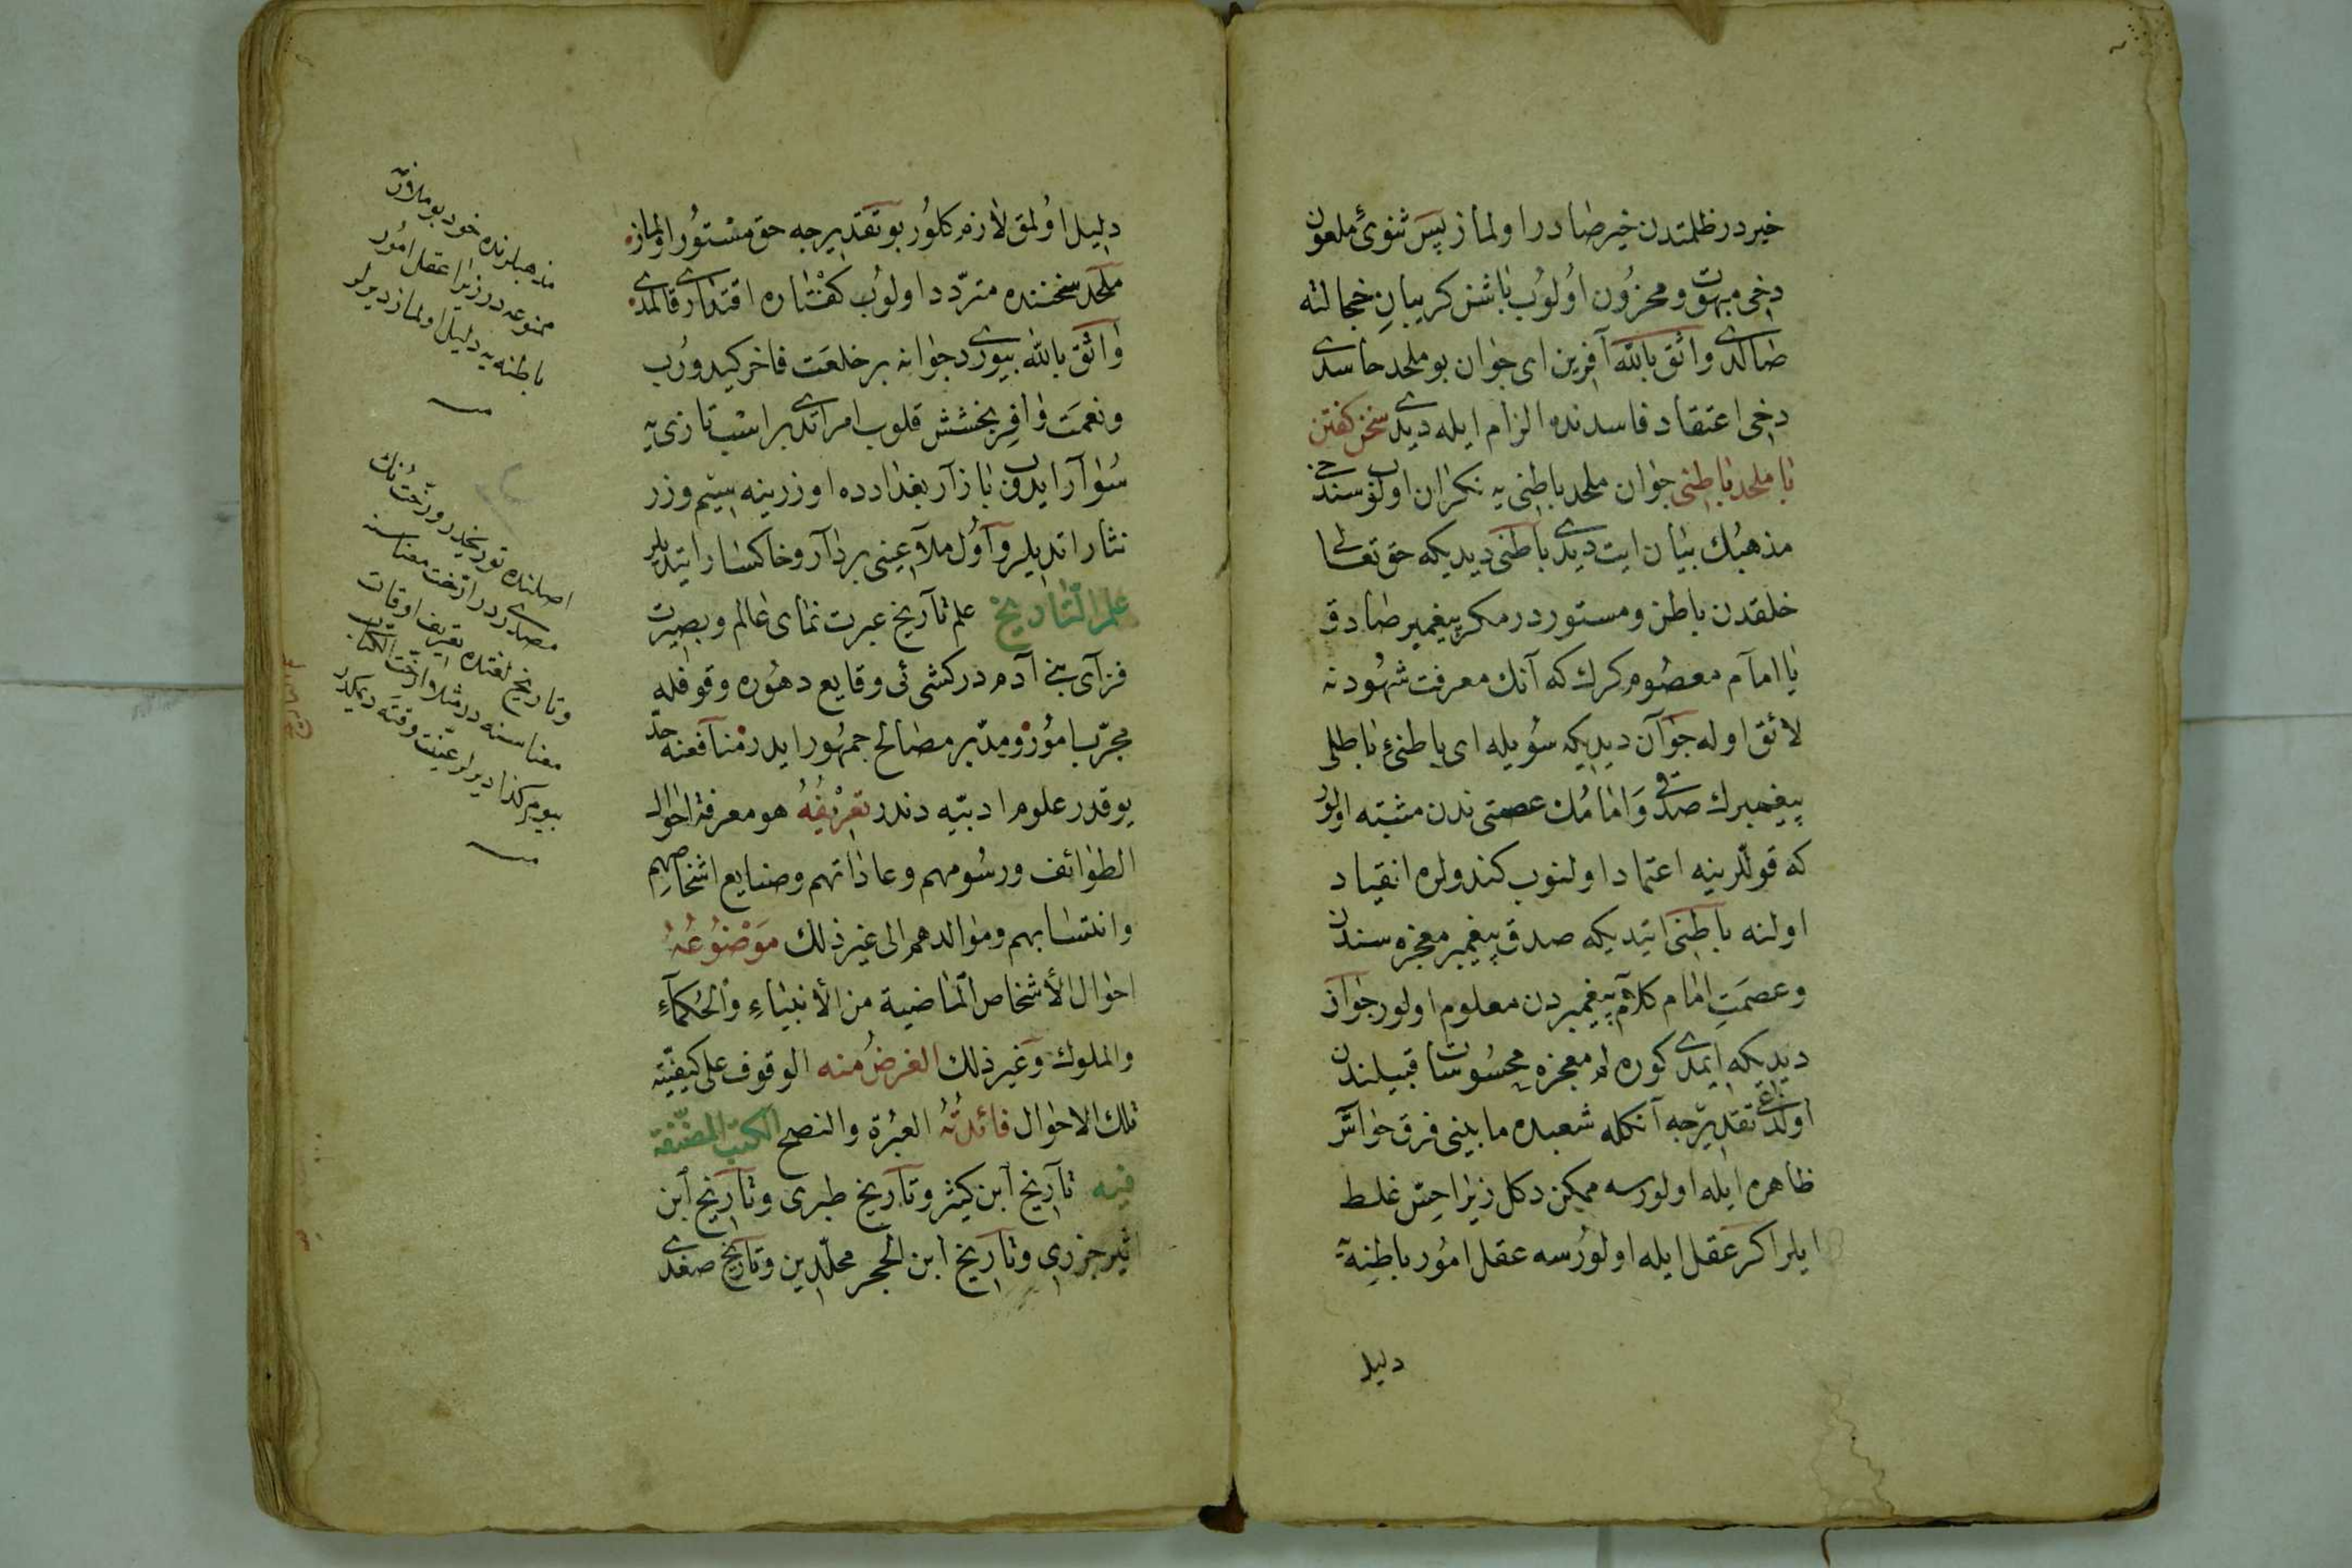 خیردر ظلمتدن خیر صادر اولماز پس ثنوئ ملعون
دخی مبهوت و محزون اولوب باشن كریبان خجالته
صالدی واثق بالله آفرین ای جوان بو ملحد حاسدی
دخی اعتقاد فاسدنده الزام ایله دیدی سخن كفتن
با ملحد باطنی جوان ملحد باطنی یه نكران اولوب سندخی
مذهبك بیان ایت دیدی باطنی دیدیكه حق تعالی
خلقدن باطن و مستوردر مكر پیغمبر صادق
یا امام معصوم كرك كه آنك معرفت شهودنه
لائق اوله جوان دیدیكه سویله ای باطنئ باطلی
پیغمبرك صدقی و امامك عصمتی ندن مثبته اولور
كه قوللرینه اعتماد اولنوب كندولره انقیاد
اولنه باطنی ایتدیكه صدق پیغمبر معجزه سندن
و عصمت امام كلام پیغمبردن معلوم اولور جوان
دیدیكه ایمدی كوره لم معجزه محسوسات قبیلندن
اولدغی تقدیرجه آنكله شعبده مابینی فرق حواس
ظاهره ایله اولورسه ممكن دكل زیرا حس غلط
ایلر اكر عقل ایله اولورسه عقل امور باطنه یه
دلیل
دلیل اولمق لازم كلور بو تقدیرجه حق مستور اولماز
ملحد سخننده متردد اولوب كفتاره اقتداری قالمدی
واثق بالله بیوردی جوانه بر خلعت فاخر كیدورب
و نعمت وافر بخشش قلوب امر اتدی بر اسب تازی یه
سوار ایدوب بازار بغدادده اوزرینه سیم و زر
نثار اتدیلر و اول ملاعینی بردار و خاكسار ایتدیلر
علم التاریخ علم تاریخ عبرت نمای عالم و بصیرت
فزای بنی آدم در كشی ئی وقایع دهوره وقوفله
مجرب امور و مدبر مصالح جمهور ایدر منافعنه حد
یوقدر علوم ادبیه دندر تعریفه هو معرفة احوال
الطوائف ورسومهم وعاداتهم وصنایع اشخاصهم
وانتسابهم وموالدهم الی غیر ذلك موضوعه
احوال الأشخاص الماضیة من الأنبیاء والحكماء
والملوك وغیر ذلك الغرض منه الوقوف علی كیفیته
تلك الاحوال فائدته العبرة والنصح الكتب المصنفة
فیه تاریخ ابن كثیر وتاریخ طبری وتاریخ ابن
اثیر جزری وتاریخ ابن الحجر محلدین وتاریخ صفدی
مذهبلرنده خود بو
ممنوعه در زیرا عقل امور
باطنه یه دلیل اولماز دیرلر
اصلنده توریخدر ورخت نك
مصدریدر ارخت معناسنه
وتاریخ لغتده تعریف اوقات
معناسنه در مثلا ارخت الكتاب
بیوم كذا دیرلر عینت وقته دیمكدر
علم التاریخ